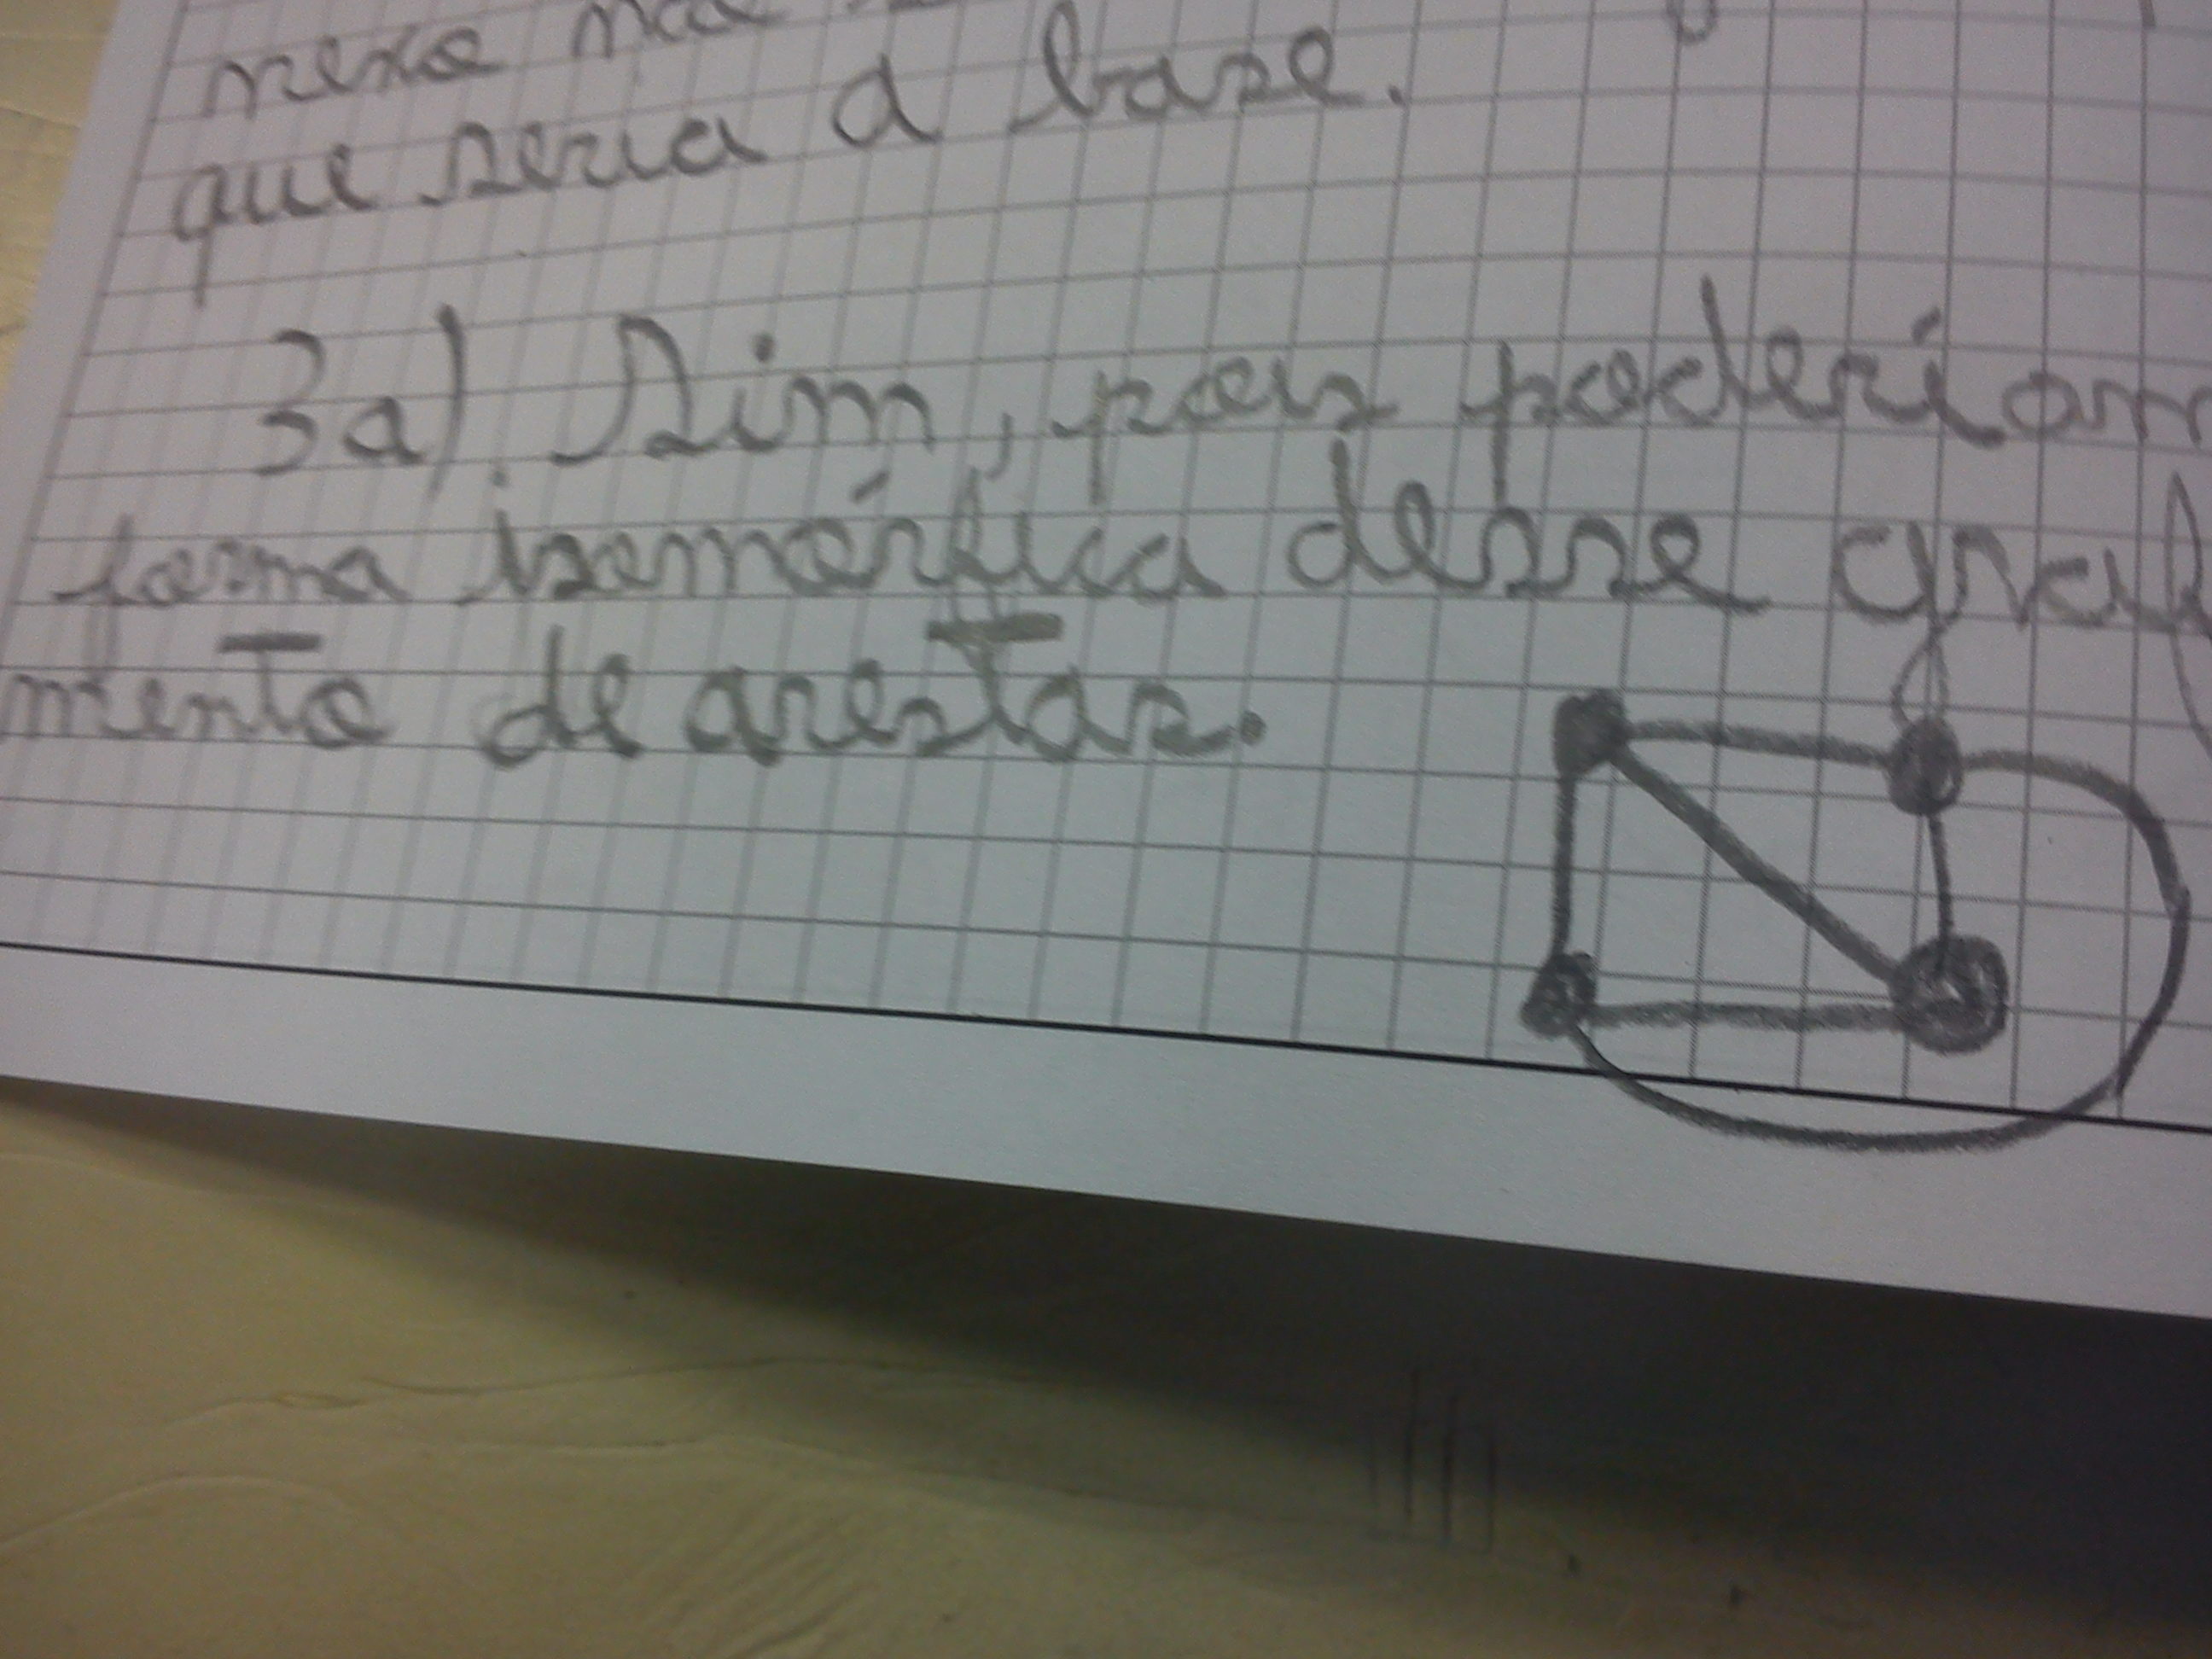 nexo não
que seria a base.
3a) Sim, pois poderíam
forma isomórfica desse graf
mento de arestas.